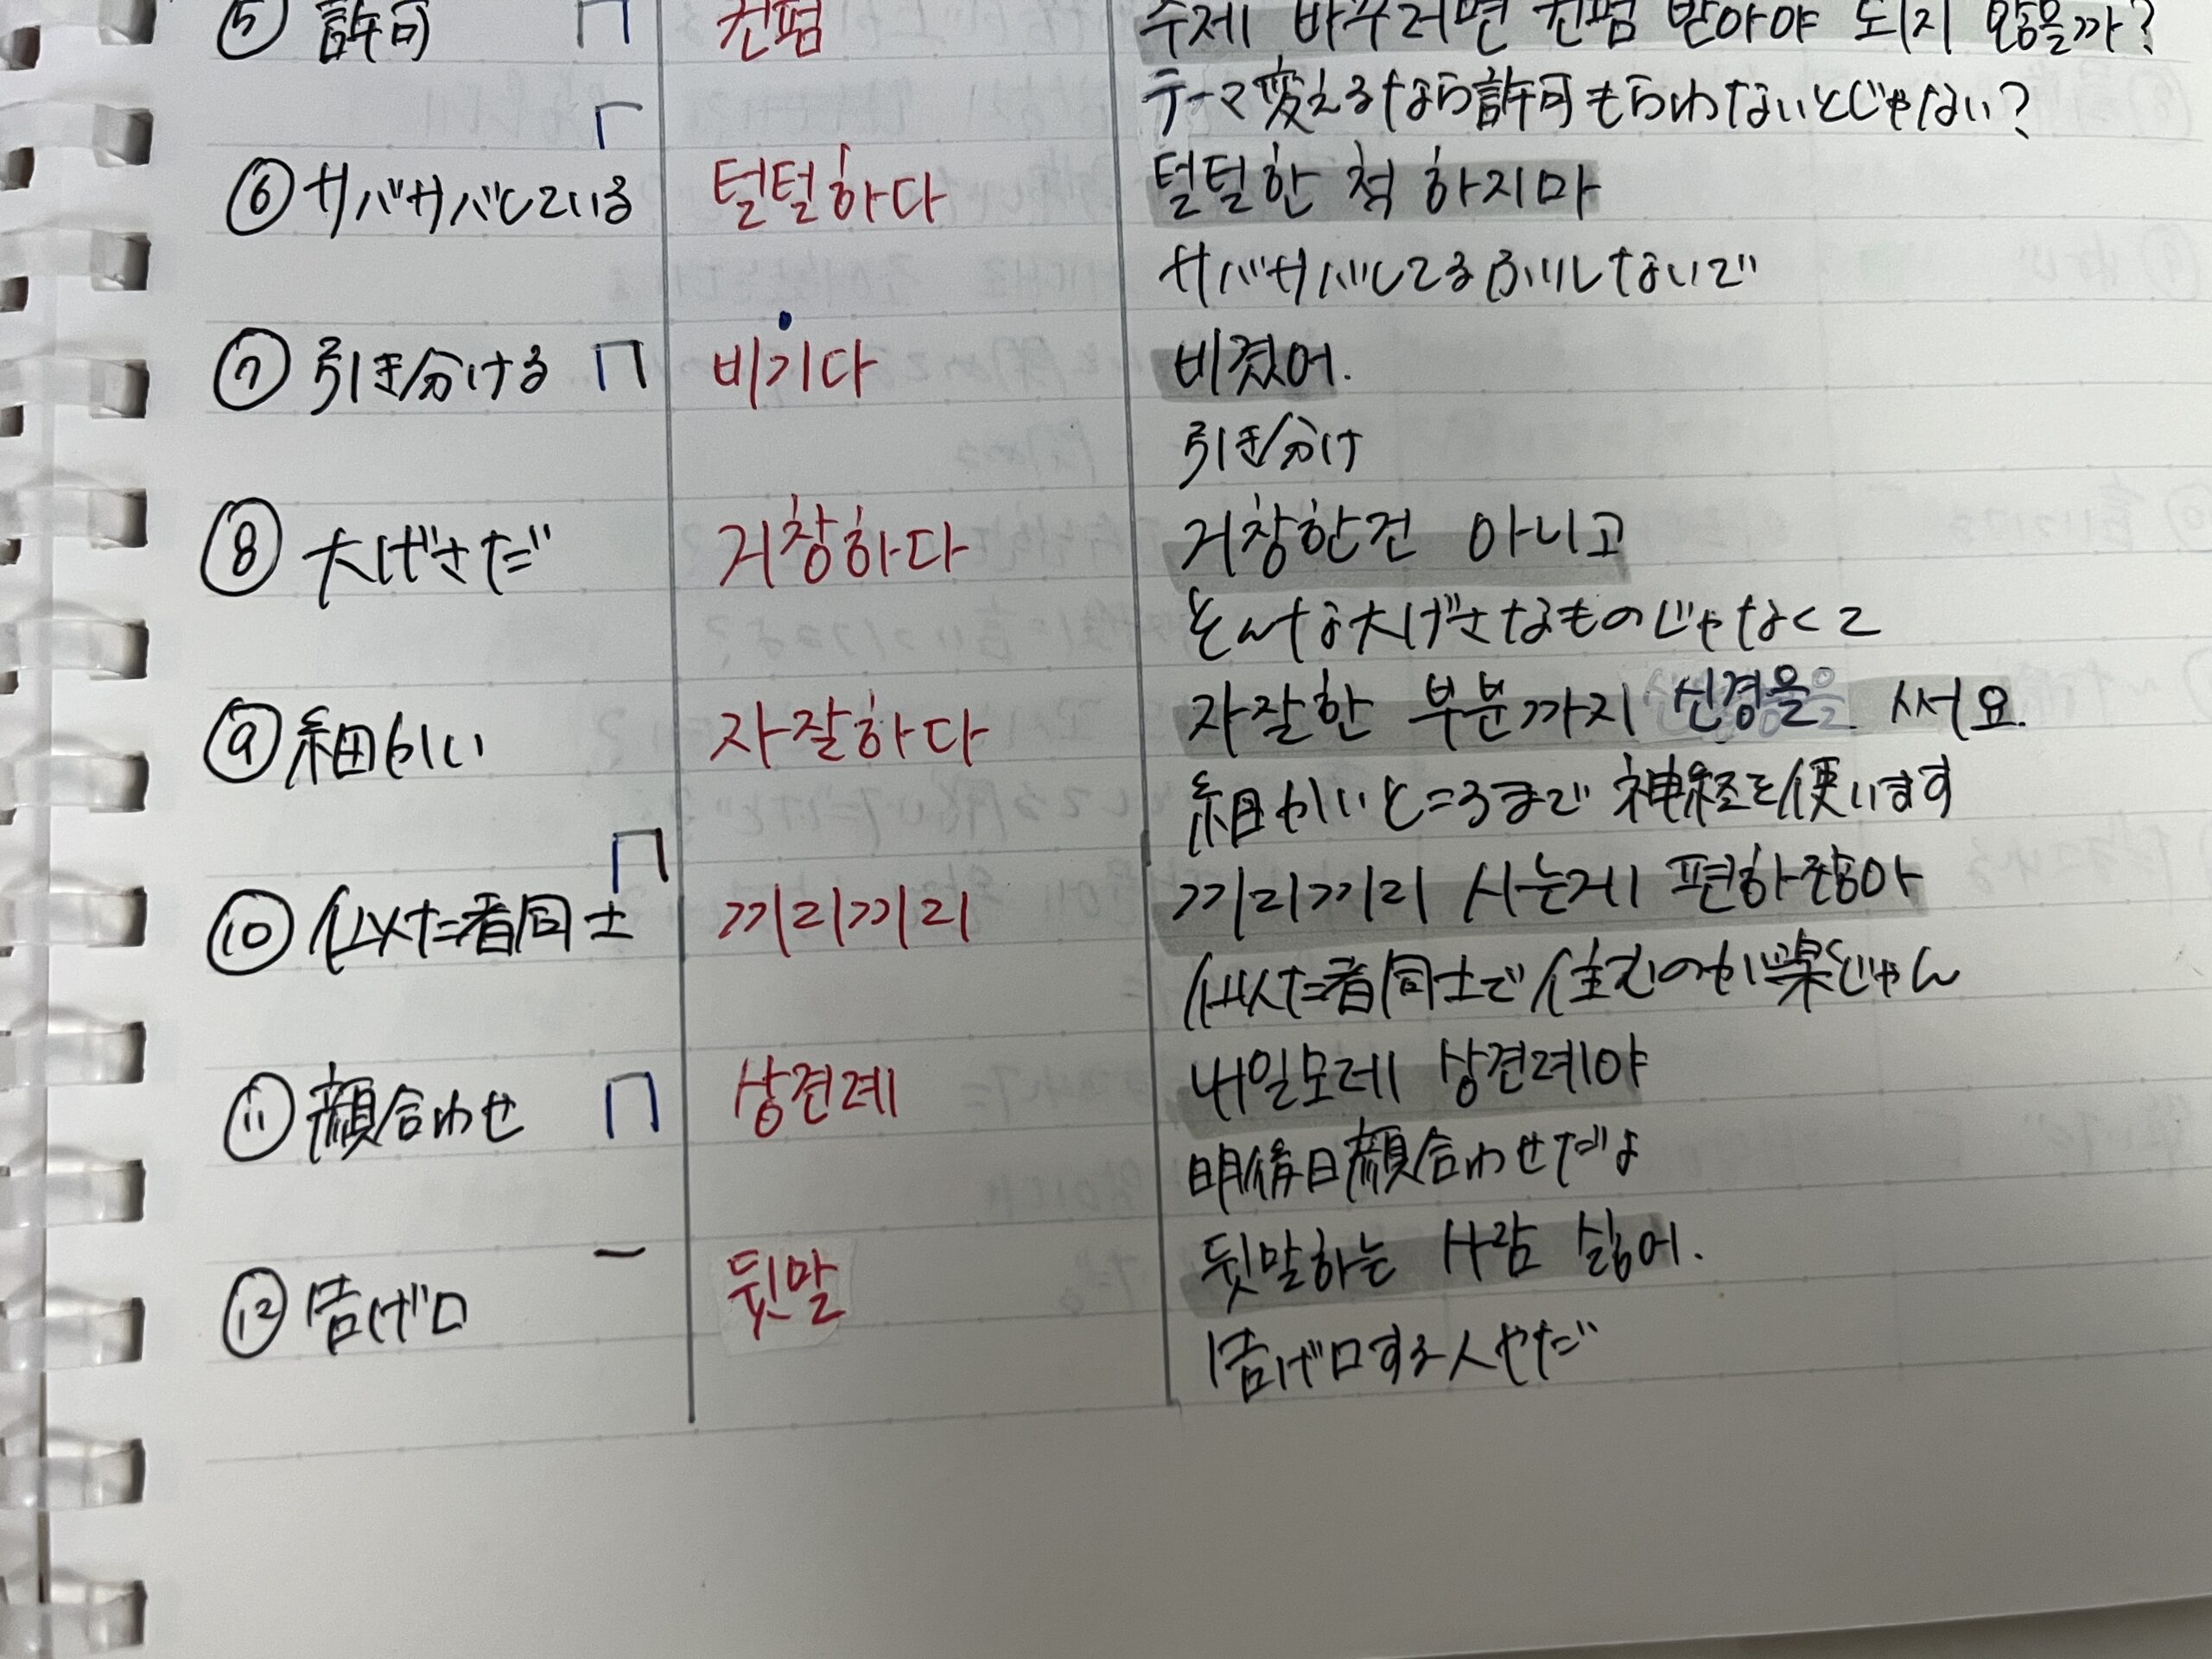 ⑤ 許可 컨펌 주제 바꾸려면 컨펌 받아야 되지 않을까?
テーマ変えるなら許可もらわないとじゃない?
⑥ サバサバしている 털털하다 털털한 척 하지마
サバサバしてるふりしないで
⑦ 引き分ける 비기다 비겼어.
引き分け
⑧ 大げさだ 거창하다 거창한건 아니고
そんな大げさなものじゃなくて
⑨ 細かい 자잘하다 자잘한 부분까지 신경을 써요.
細かいところまで神経を使います
⑩ 似た者同士 끼리끼리 끼리끼리 사는게 편하잖아
似た者同士で住むのが楽じゃん
⑪ 顔合わせ 상견례 내일모레 상견례야
明後日顔合わせだよ
⑫ 告げ口 뒷말 뒷말하는 사람 싫어.
告げ口する人やだ